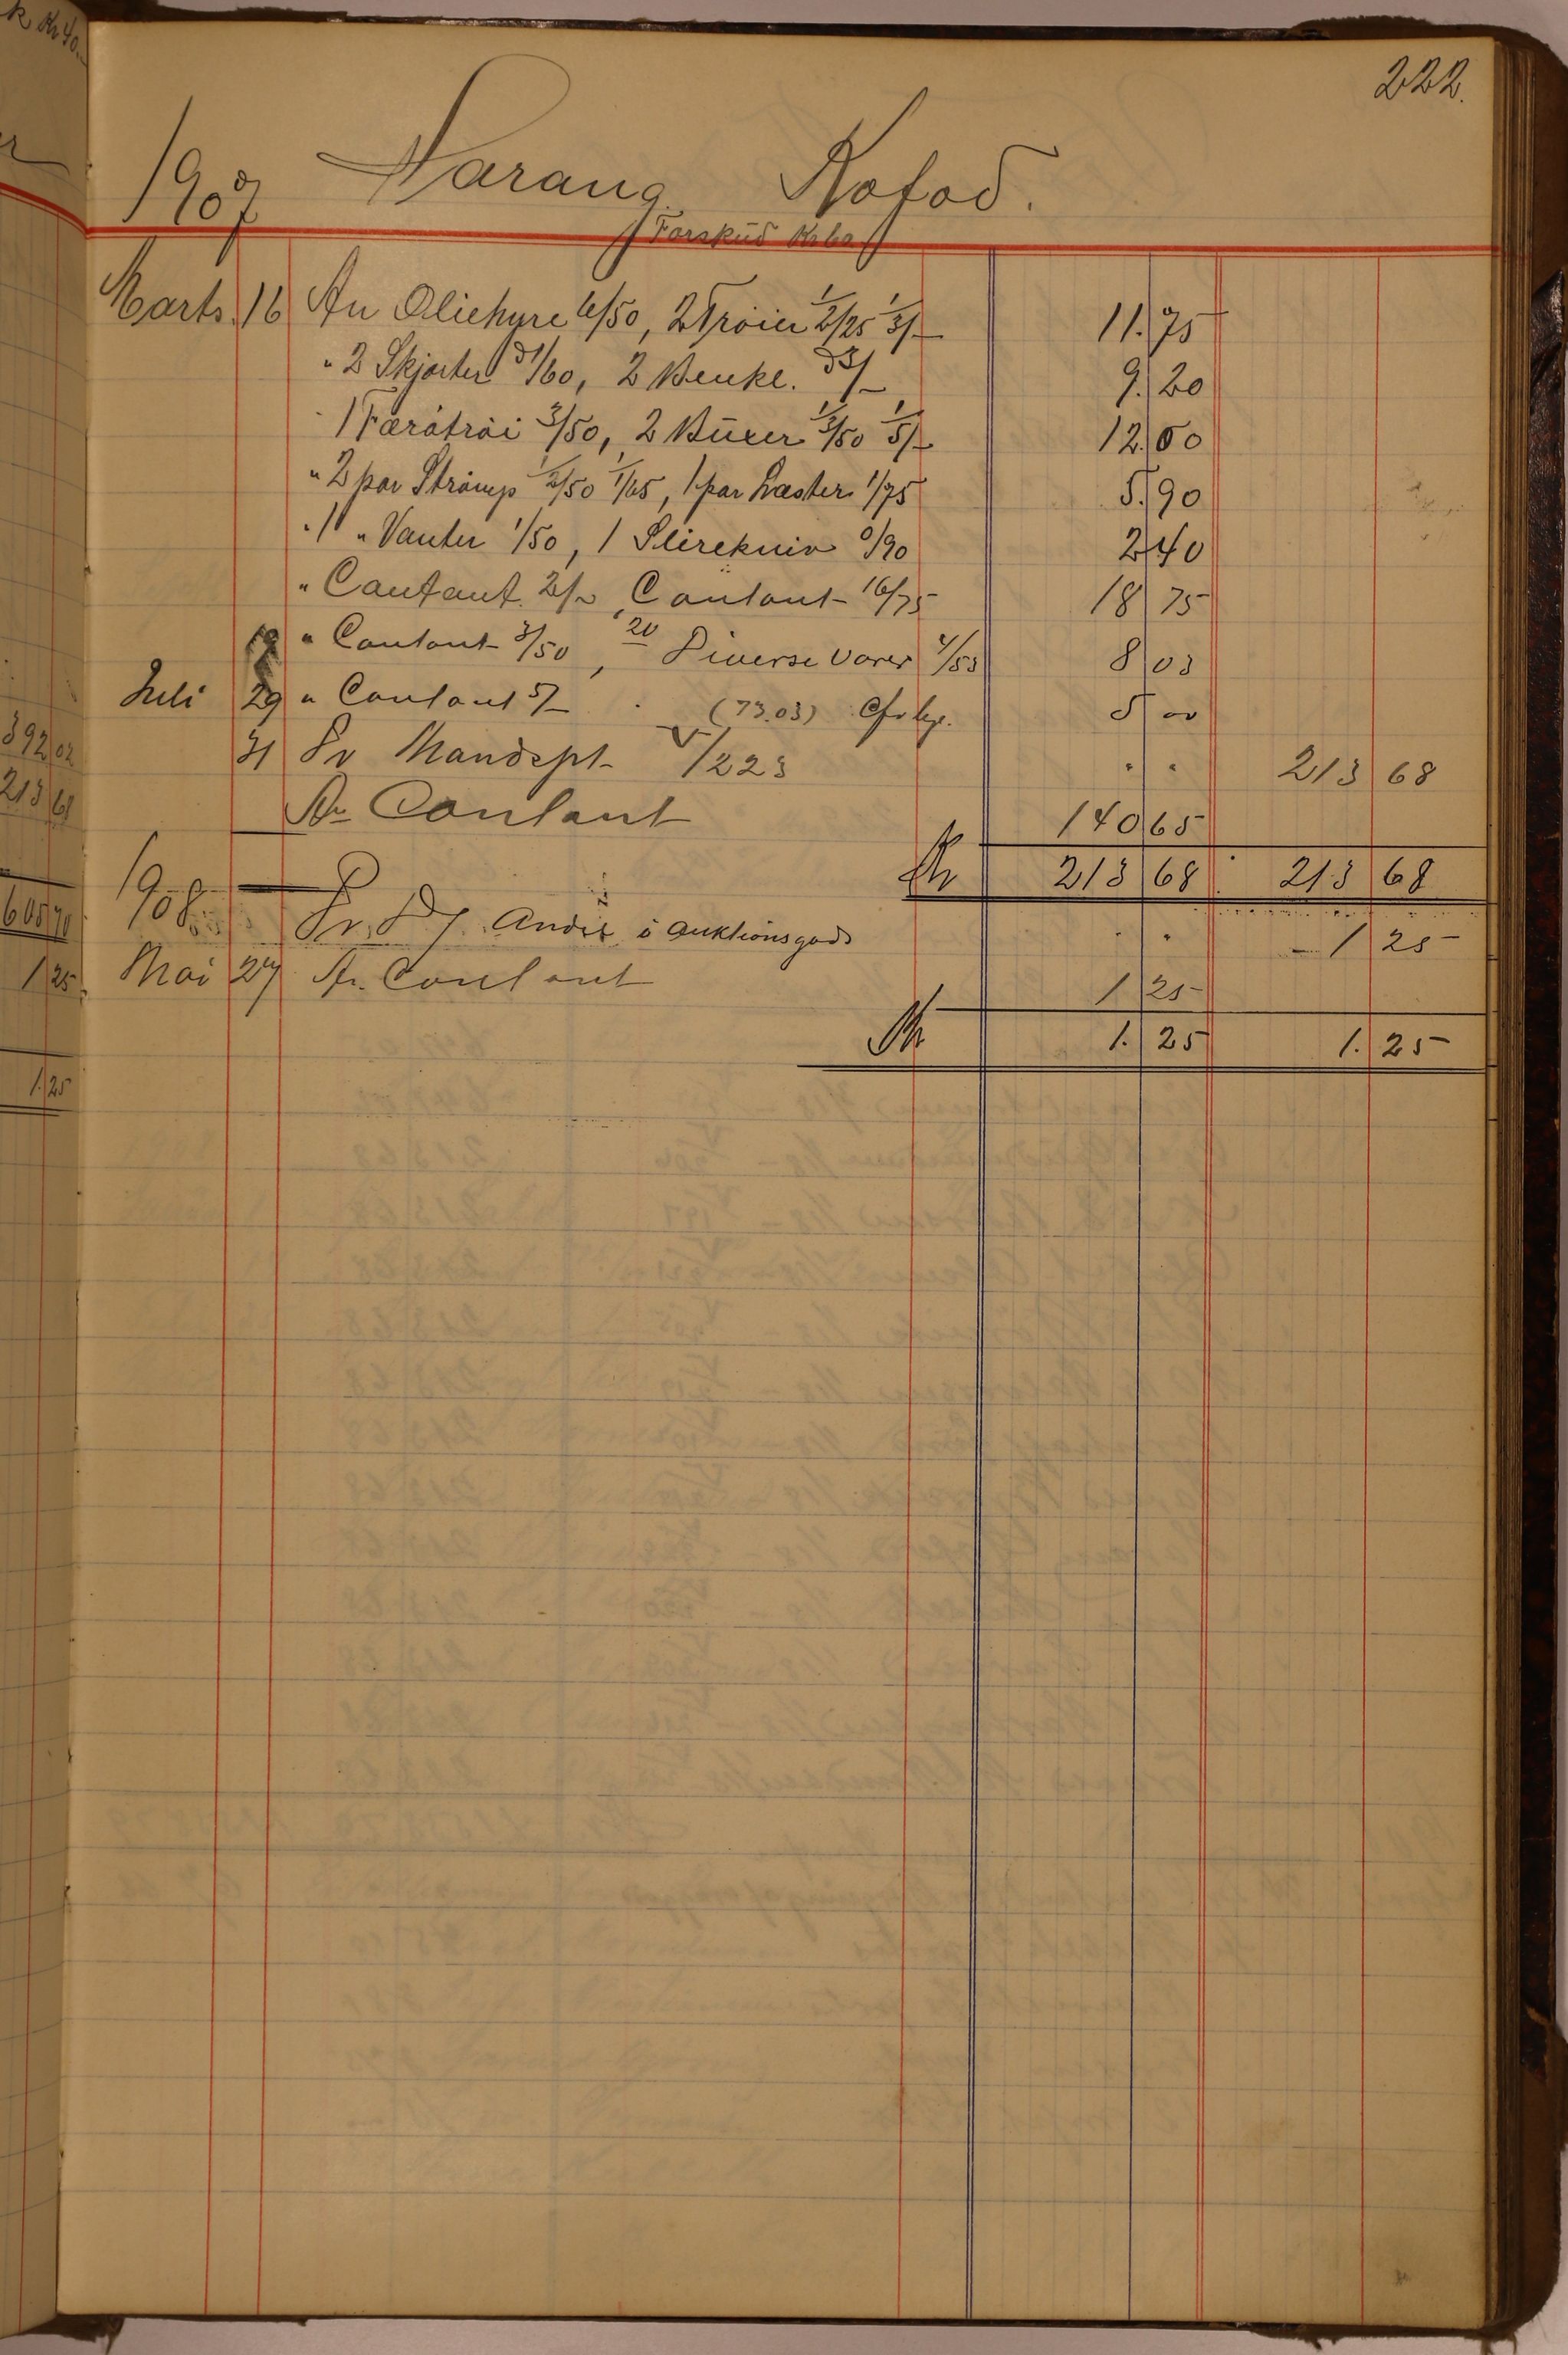 222.
1907 Kofod.
Forskud Kr 60
Marts. 16 An Oliehyre 6/50, 2 Trøier 1/2/25 1/3/- 11.75
" 2 Skjorter à 1/60, 2 Benkl. à 3/- 9.20
" 1 Færøtrøi 3/50, 2 Büxer 1/3/50 1/5/- 12.00
" 2 par Strømp 1/2/50 1/1/65, 1 par Læster 1/75 5.90
" 1 " Vanter 1/50, 1 Slirekniv 0/90 2 40
" Contant. 2/-, Contant 16/75 18 75
" Contant 3/50, 20 Diverse varer 4/53 8 03
Juli 29 " Contant 5/- (73.03) 5 00
31 Pr Mandspt. V/223 " " 213 68
An Contant 140 65
Kr 213 68 213 68
1908
Pr. Andel i Auktionsgods " " 1 25
Mai 27 An Contant 1 25
Kr 1. 25 1. 25
k Kr 40.
392 02
213 68
605 70
1 25
1. 25